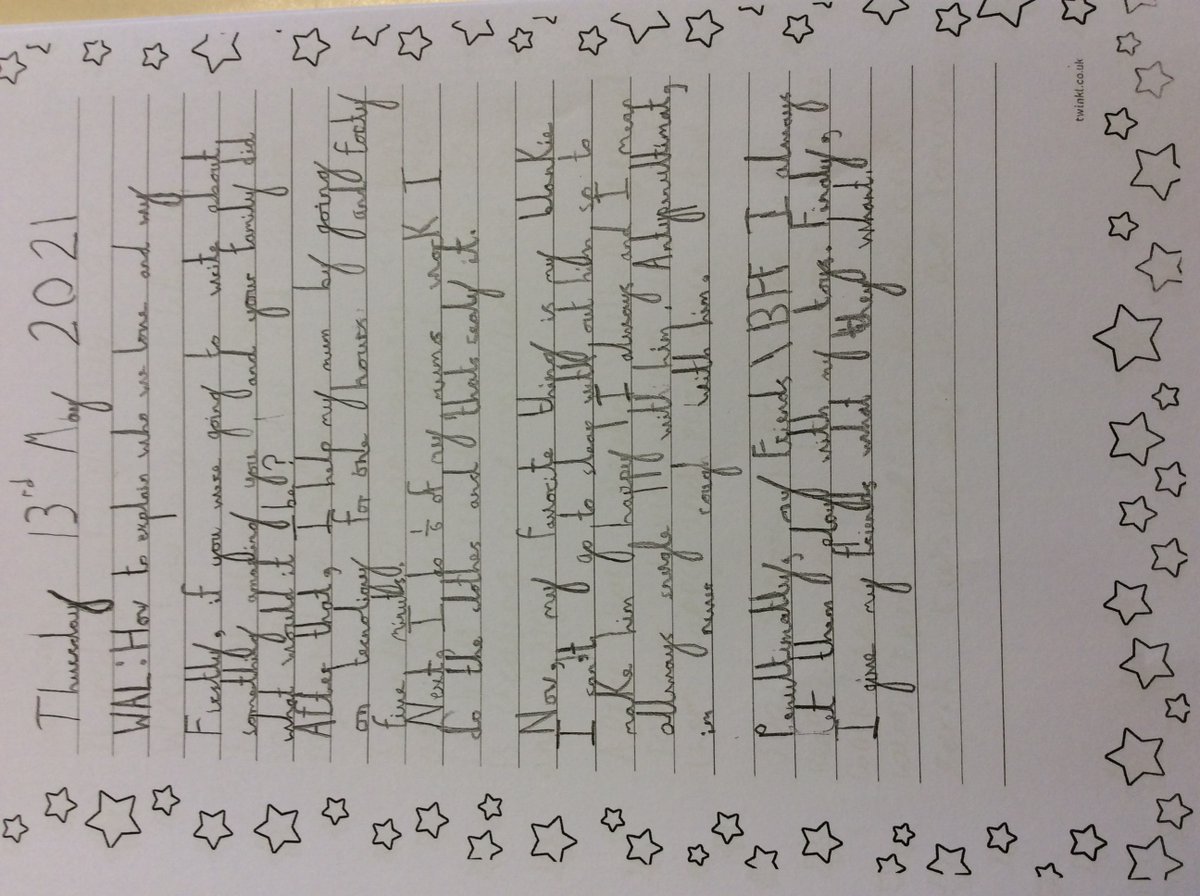 Thursday 13rd May 2021
WAL: How to explain who we love and why
Firstly, if you were going to write about
something amazing you and your family did
what would it be?
After that, I help my mum by going
on tecnoligey for one hour and forty
five minutes.
Next, I do 1/6 of my mums work I
do the clothes and thats realy it.
Now, my favorite thing is my blankie
I can't go to sleep without him so to
make him happy I always and I mean
allways snugle with him. Antypenultimat,
im never rough with him.
Penultimatly, my Friends \ BFF I always
let them play with my toys. Finaly,
I give my friends what they whant.
twinkl.co.uk